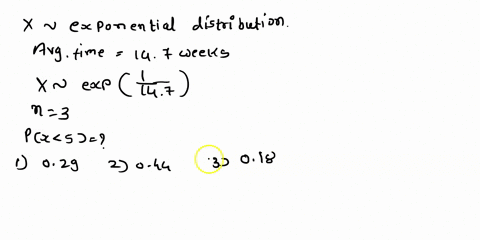 X ~ exponential distribution.
Avg. time = 14.7 weeks
X ~ exp(1/14.7)
n = 3
P(x<5) = ?
1) 0.29 2) 0.44 3) 0.18